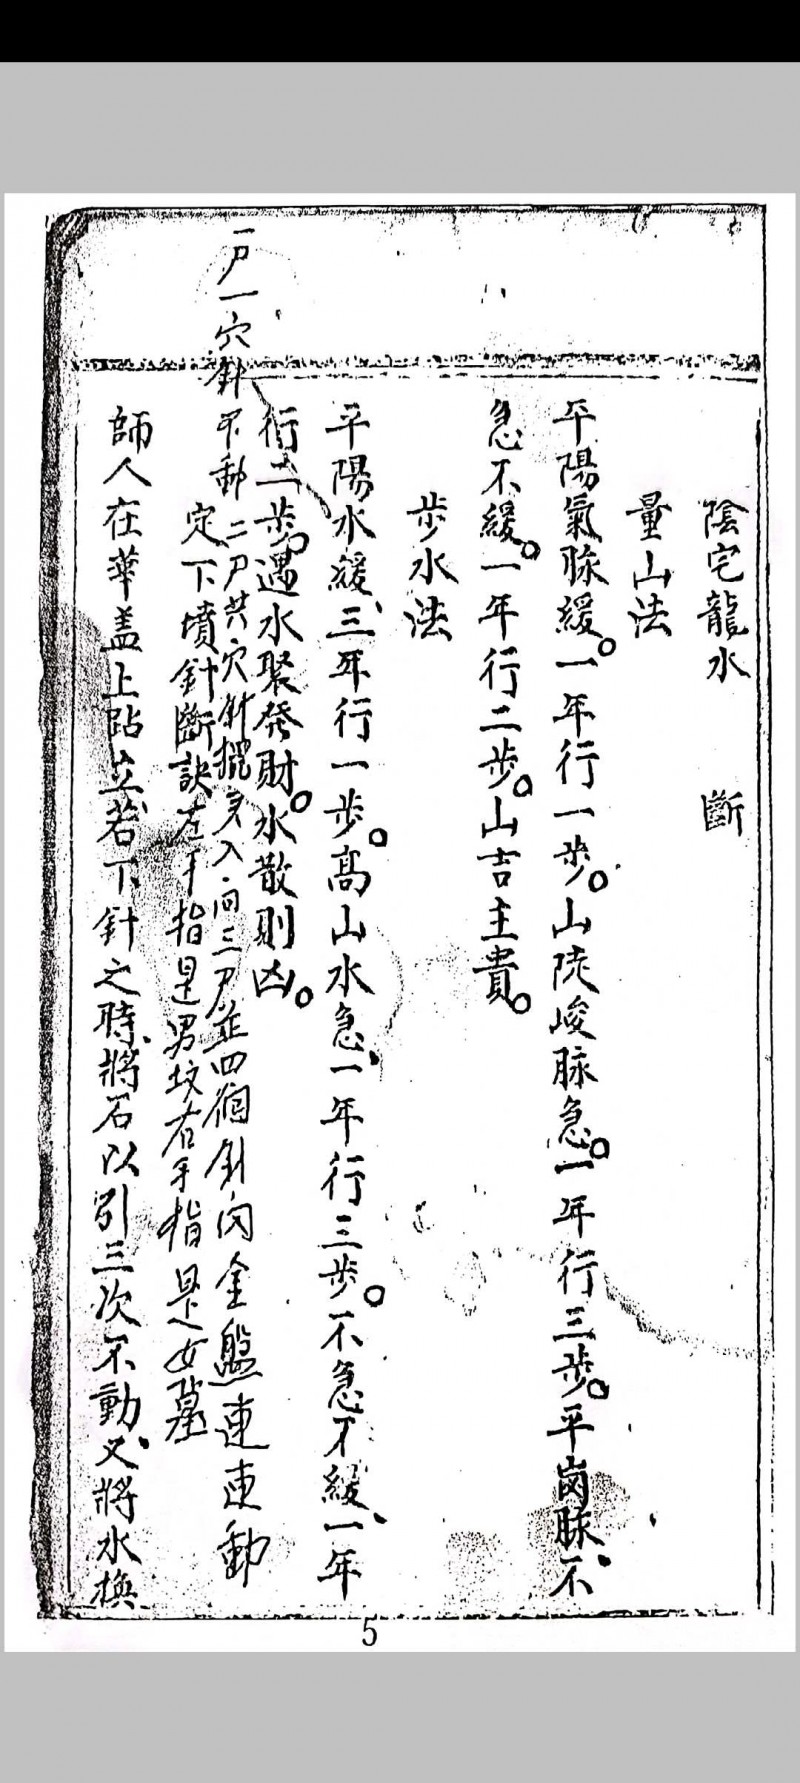 陰宅龍水　斷
量山法
平陽氣脉緩。一年行一步。山陡峻脉急。一年行三步。平崗脉、不
急不緩。一年行二步。山吉主貴。
步水法
平陽水緩、三年行一步。高山水急、一年行三步。不急不緩、一年
行二步。遇水聚發財。水散則凶。
一尸一穴針不動二尸共穴針擺入向三尸並四個針向金盤連連動
定下墳針斷訣左手指是男坟右手指是女墓
師人在華盖上跕立、若下針之時、將石以引三次不動、又將水換
5